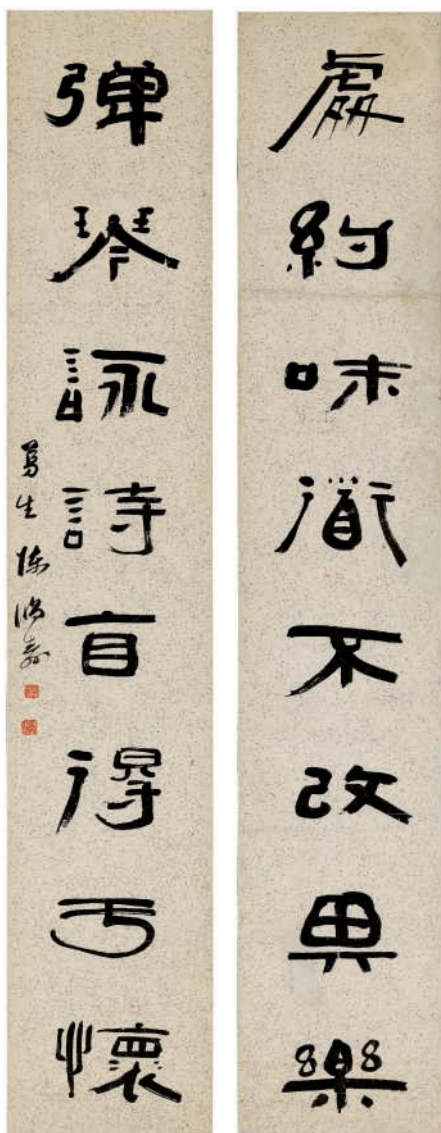 處約味衜不改其樂
彈琴詠詩自得于懷
曼生陳鴻壽